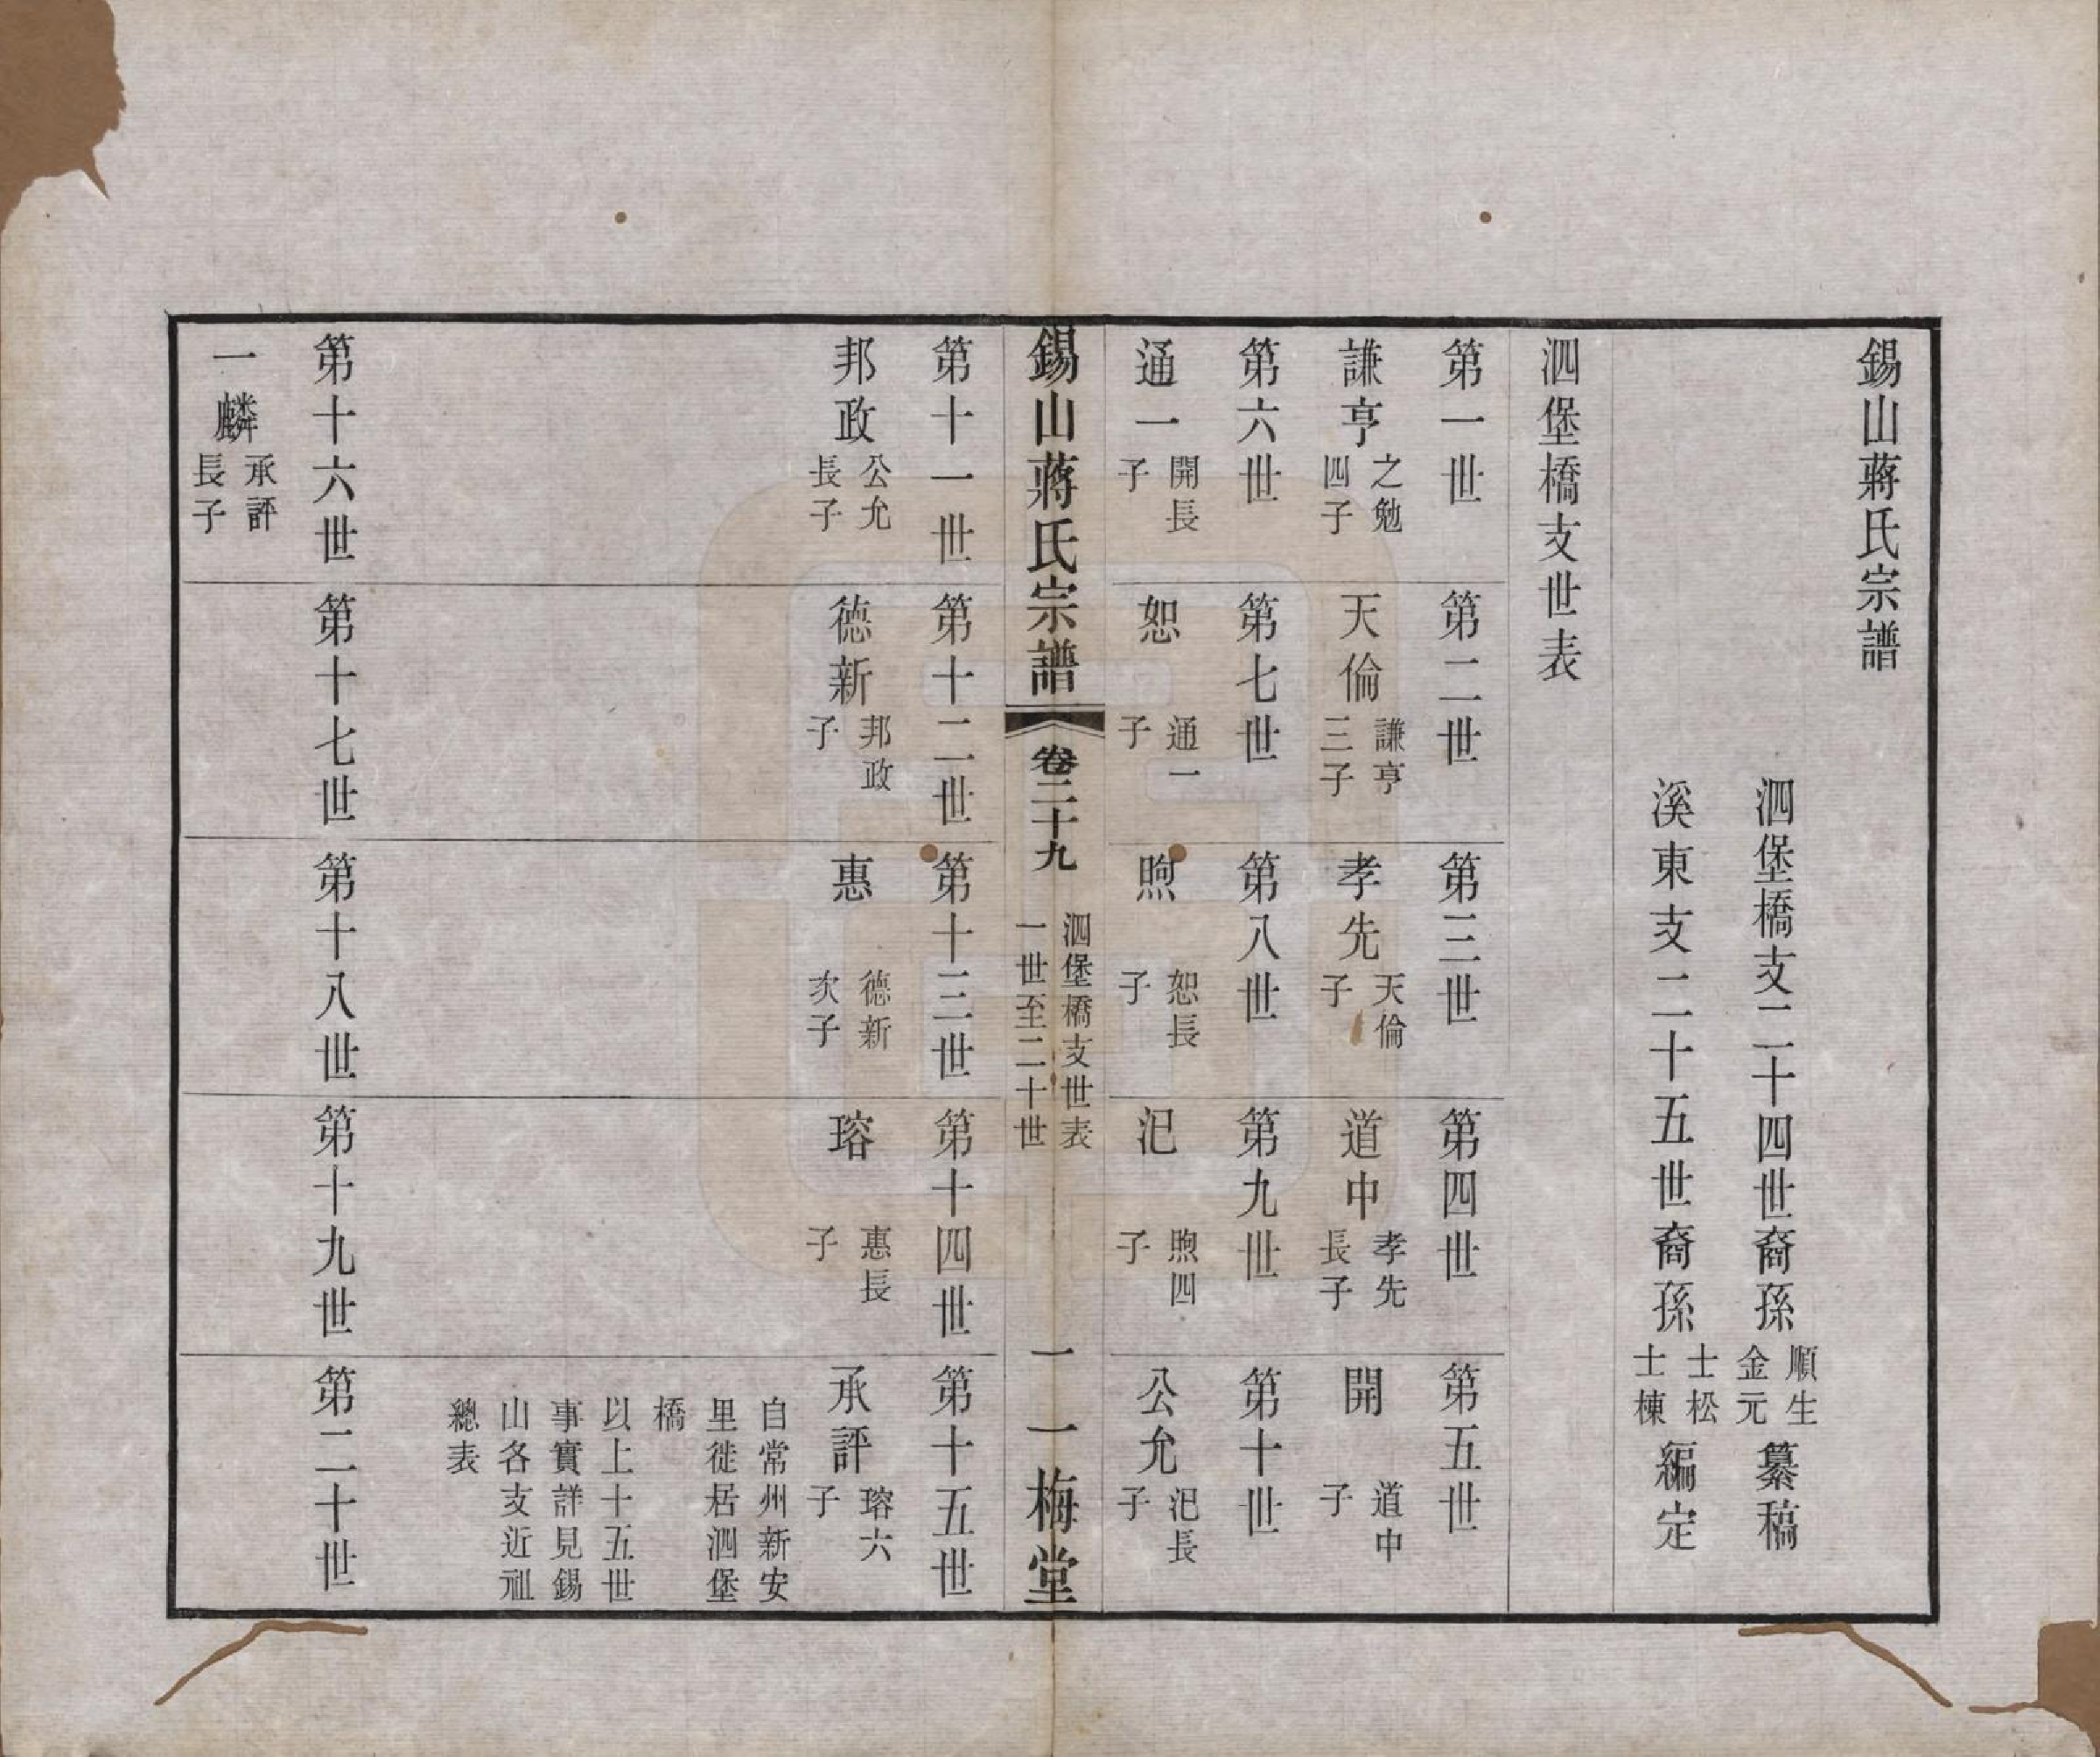 錫山蔣氏宗譜
泗堡橋支二十四世裔孫 順生 金元 纂稿
溪東支二十五世裔孫 士松 士棟 編定
泗堡橋支世表
第一世 第二世 第三世 第四世 第五世
謙亨 之勉四子 天倫 謙亨三子 孝先 天倫子 道中 孝先長子 開 道中子
第六世 第七世 第八世 第九世 第十世
通一 開長子 恕 通一子 煦 恕長子 汜 煦四子 公允 汜長子
錫山蔣氏宗譜 卷二十九 泗堡橋支世表 一世至二十世 一 一梅堂
第十一世 第十二世 第十三世 第十四世 第十五世
邦政 公允長子 德新 邦政子 惠 德新次子 瑢 惠長子 承評 瑢六子
自常州新安
里徙居泗堡
橋
以上十五世
事實詳見錫
山各支近祖
總表
第十六世 第十七世 第十八世 第十九世 第二十世
一麟 承評長子